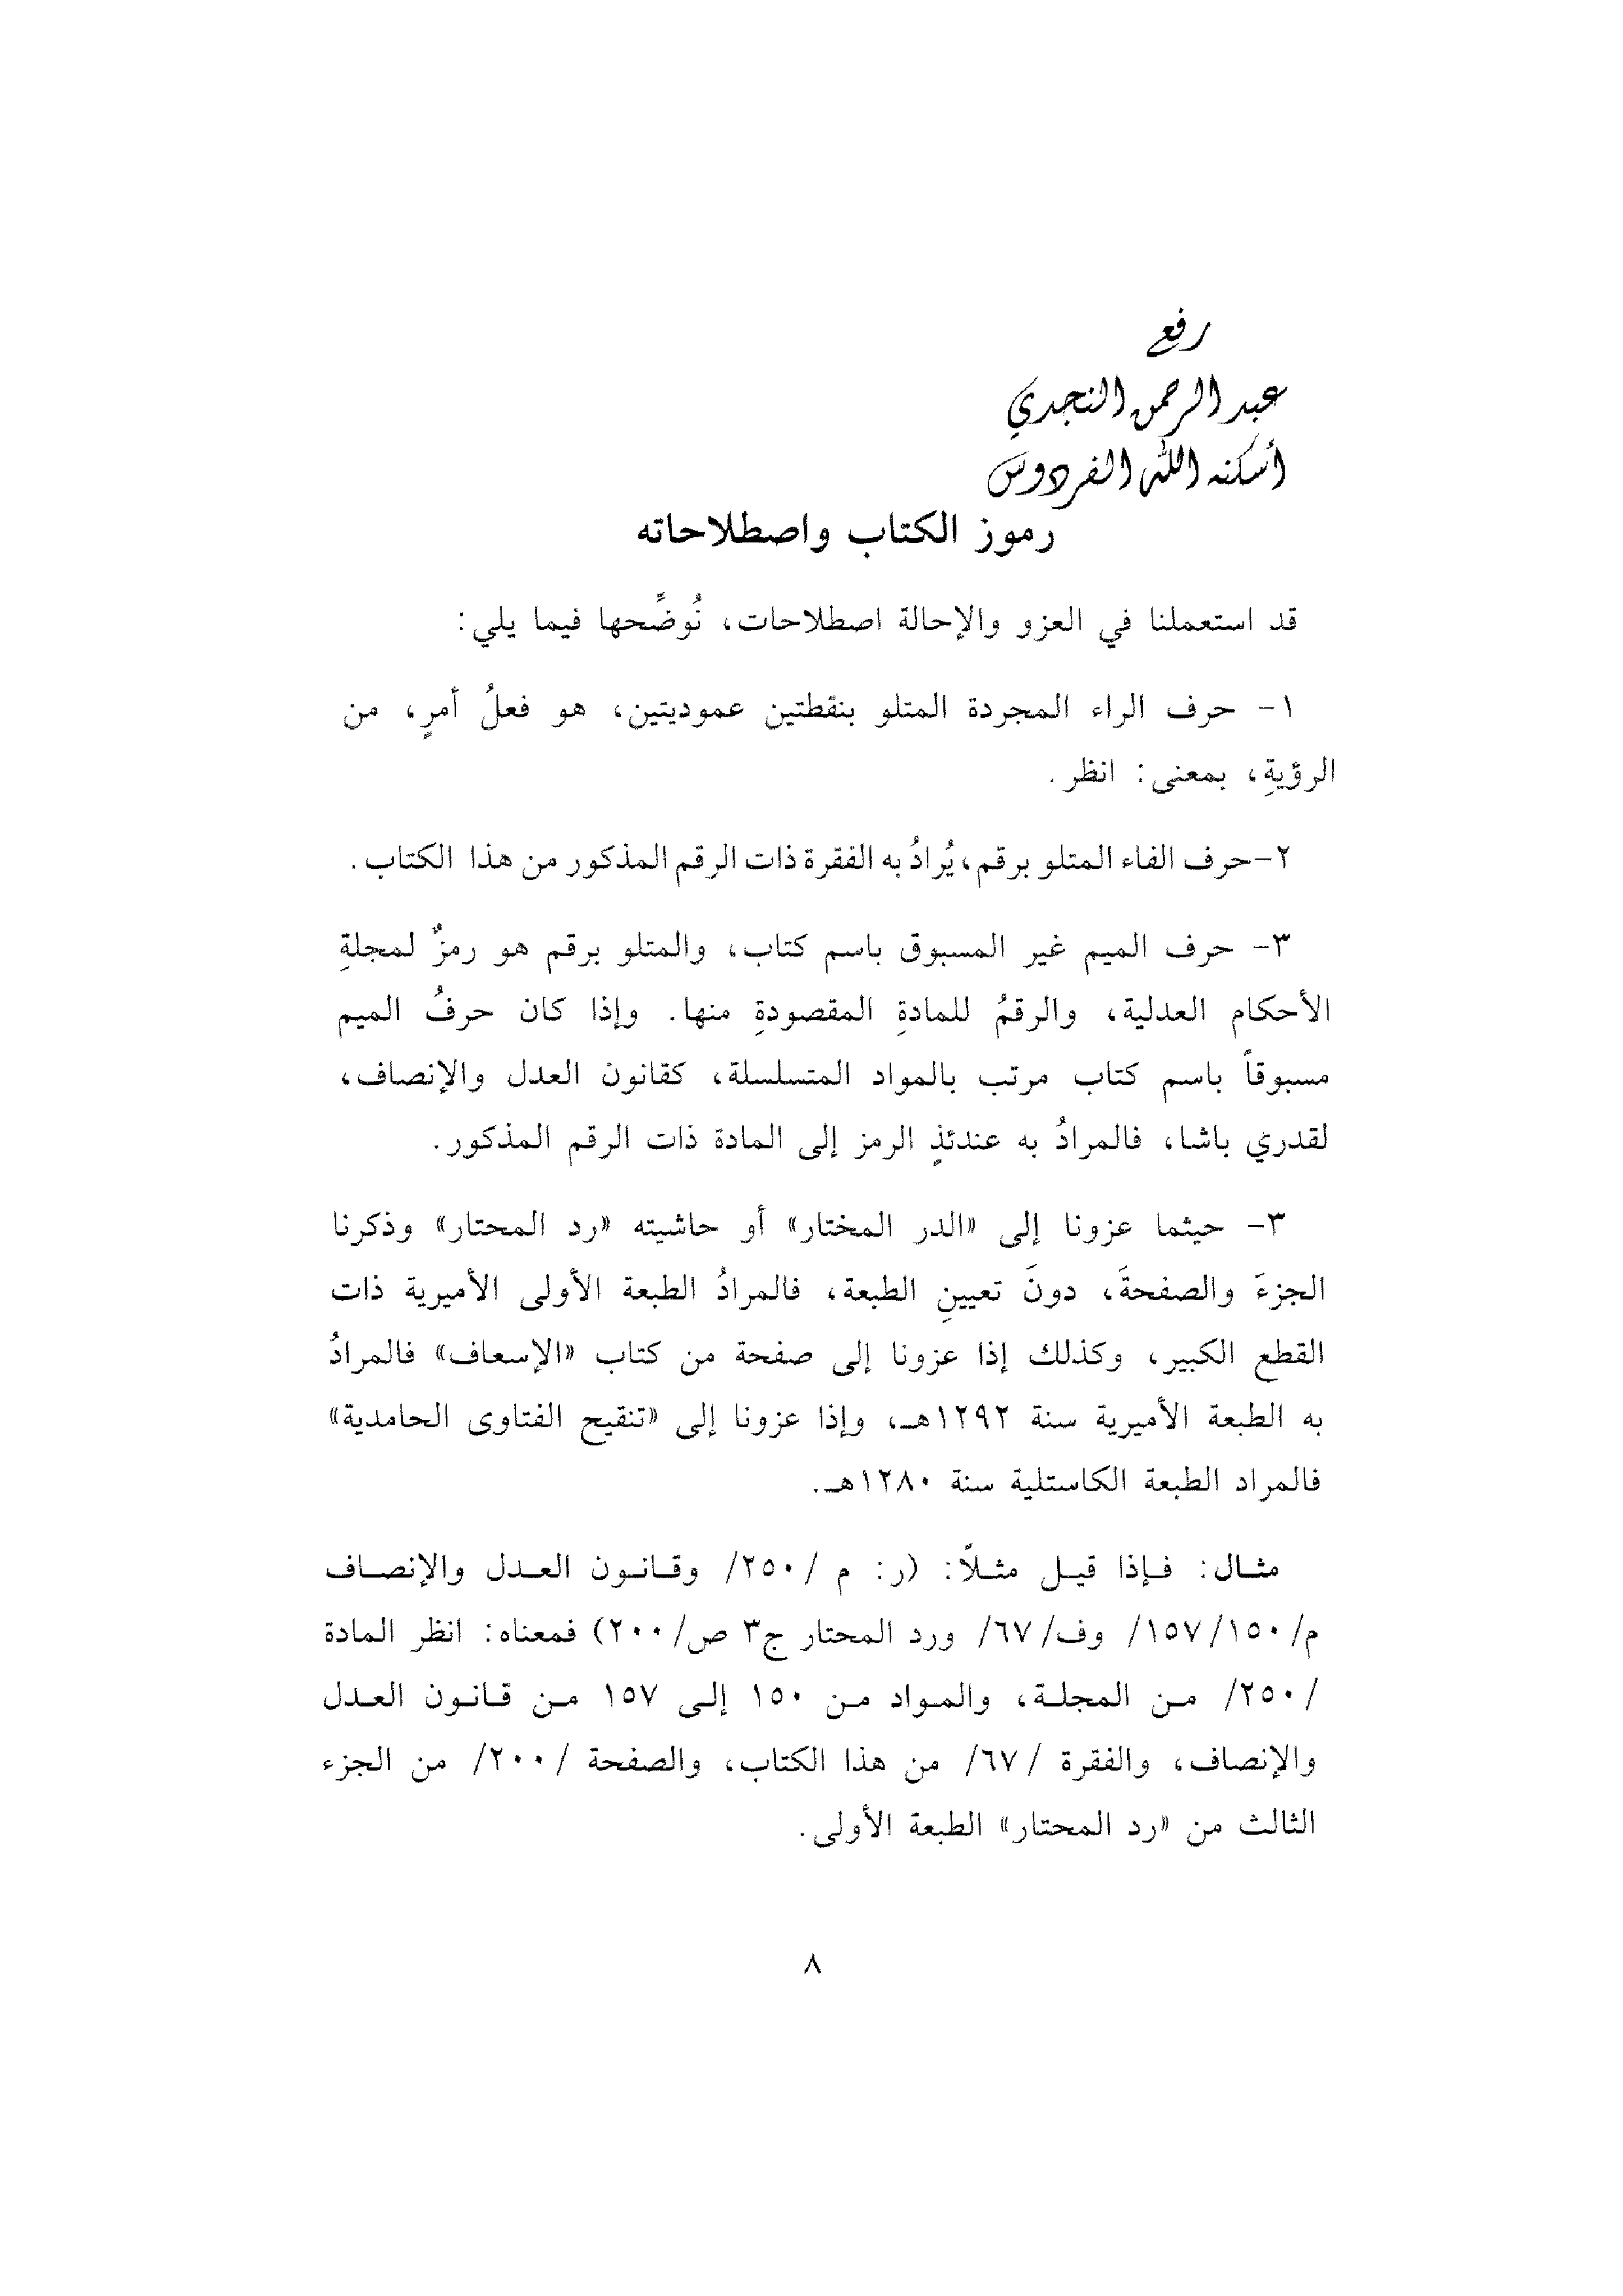 رفع
عبد الرحمن النجدي
أسكنه الله الفردوس
رموز الكتاب واصطلاحاته
قد استعملنا في العزو والإحالة اصطلاحات، نُوضِّحها فيما يلي:
١- حرف الراء المجردة المتلو بنقطتين عموديتين، هو فعلُ أمرٍ، من
الرؤيةِ، بمعنى: انظر.
٢-حرف الفاء المتلو برقم، يُرادُ به الفقرة ذات الرقم المذكور من هذا الكتاب.
٣- حرف الميم غير المسبوق باسم كتاب، والمتلو برقم هو رمزٌ لمجلةِ
الأحكام العدلية، والرقمُ للمادةِ المقصودةِ منها. وإذا كان حرفُ الميم
مسبوقاً باسم كتاب مرتب بالمواد المتسلسلة، كقانون العدل والإنصاف،
لقدري باشا، فالمرادُ به عندئذٍ الرمز إلى المادة ذات الرقم المذكور.
٣- حيثما عزونا إلى «الدر المختار» أو حاشيته «رد المحتار» وذكرنا
الجزءَ والصفحةَ، دونَ تعيينِ الطبعة، فالمرادُ الطبعة الأولى الأميرية ذات
القطع الكبير، وكذلك إذا عزونا إلى صفحة من كتاب «الإسعاف» فالمرادُ
به الطبعة الأميرية سنة ١٢٩٢هـ، وإذا عزونا إلى «تنقيح الفتاوى الحامدية»
فالمراد الطبعة الكاستلية سنة ١٢٨٠هـ.
مثـال: فـإذا قيـل مثـلاً: (ر: م /٢٥٠/ وقـانـون العـدل والإنصـاف
م/١٥٠/١٥٧/ وف/٦٧/ ورد المحتار ج٣ ص/٢٠٠) فمعناه: انظر المادة
/٢٥٠/ مـن المجلـة، والمـواد مـن ١٥٠ إلـى ١٥٧ مـن قـانـون العـدل
والإنصاف، والفقرة /٦٧/ من هذا الكتاب، والصفحة /٢٠٠/ من الجزء
الثالث من «رد المحتار» الطبعة الأولى.
٨